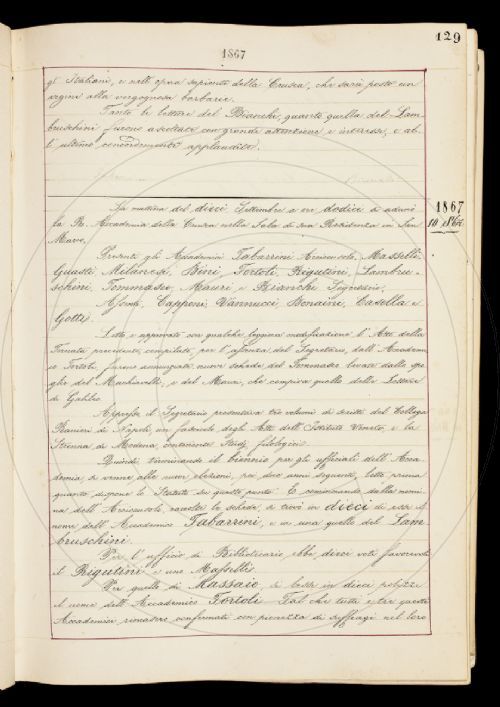 129
1867
gl' Italiani, e nell' opera sapiente della Crusca, che sarà posto un
argine alla vergognosa barbarie.
Tanto la lettera del Bianchi, quanto quella del Lam-
bruschini furono ascoltate con grande attenzione e interesse, e al-
l' ultimo concordemente applaudite.
1867
10 7bre
La mattina del dieci Settembre a ore dodici si adunò
la R. Accademia della Crusca nella Sala di sua Residenza in San
Marco.
Presenti gli Accademici Tabarrini Arciconsolo, Masselli,
Guasti, Milanesi, Bini, Tortoli, Rigutini, Lambru-
schini, Tommaseo, Mauri e Bianchi Segretario,
Assenti, Capponi, Vannucci, Bonaini, Casella e
Gotti.
Letto e approvato con qualche leggiera modificazione l' Atto della
Tornata precedente, compilato, per l' assenza del Segretario, dall' Accademi-
co Tortoli, furono annunziate nuove schede del Tommaseo levate dallo spo-
glio del Machiavelli, e del Mauri, che compiva quello delle Lettere
di Galileo.
Appresso il Segretario presentava tre volumi di scritti del Collega
Ranieri di Napoli, un fascicolo degli Atti dell' Istituto Veneto, e la
Strenna di Modena, contenente Studj filologici.
Quindi, terminando il biennio per gli ufficiali dell' Acca-
demia si venne alle nuove elezioni, per due anni seguenti, letto prima
quanto dispone lo Statuto su questo punto. E cominciando dalla nomi-
na dell' Arciconsolo, raccolte le schede, si trovò in dieci di esse il
nome dell' Accademico Tabarrini, e in una quello del Lam-
bruschini.
Per l' ufficio di Bibliotecario ebbe dieci voti favorevoli
il Rigutini e uno Masselli.
Per quello di Massaio, si lesse in dieci polizze
il nome dell' Accademico Tortoli. Tal che tutti e tre questi
Accademici rimasero confermati con pienezza di suffragi nel loro